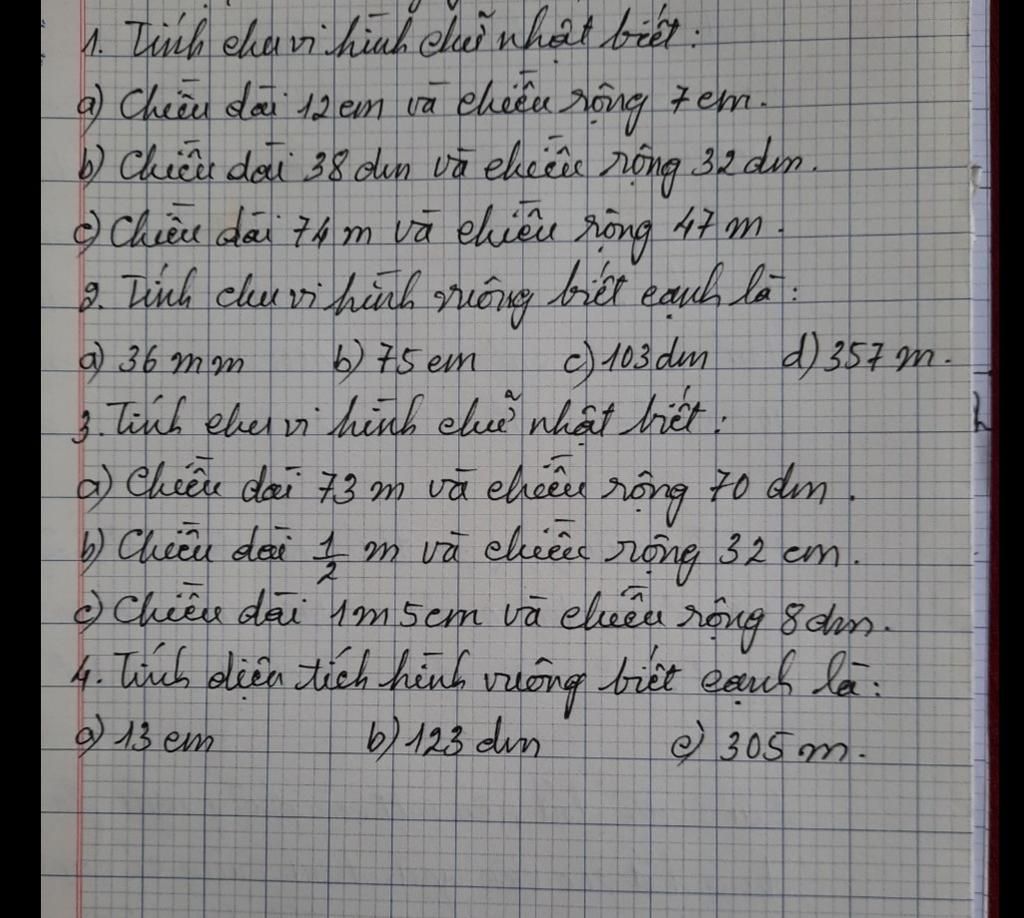 1. Tính chu vi hình chữ nhật biết:
a) Chiều dài 12cm và chiều rộng 7cm.
b) Chiều dài 38 dm và chiều rộng 32 dm.
c) Chiều dài 74 m và chiều rộng 47 m.
2. Tính chu vi hình vuông biết cạnh là:
a) 36 mm b) 75 cm c) 103 dm d) 357 m.
3. Tính chu vi hình chữ nhật biết:
a) Chiều dài 73 m và chiều rộng 70 dm.
b) Chiều dài 1/2 m và chiều rộng 32 cm.
c) Chiều dài 1m 5cm và chiều rộng 8 dm.
4. Tính diện tích hình vuông biết cạnh là:
a) 13 cm b) 123 dm c) 305 m.